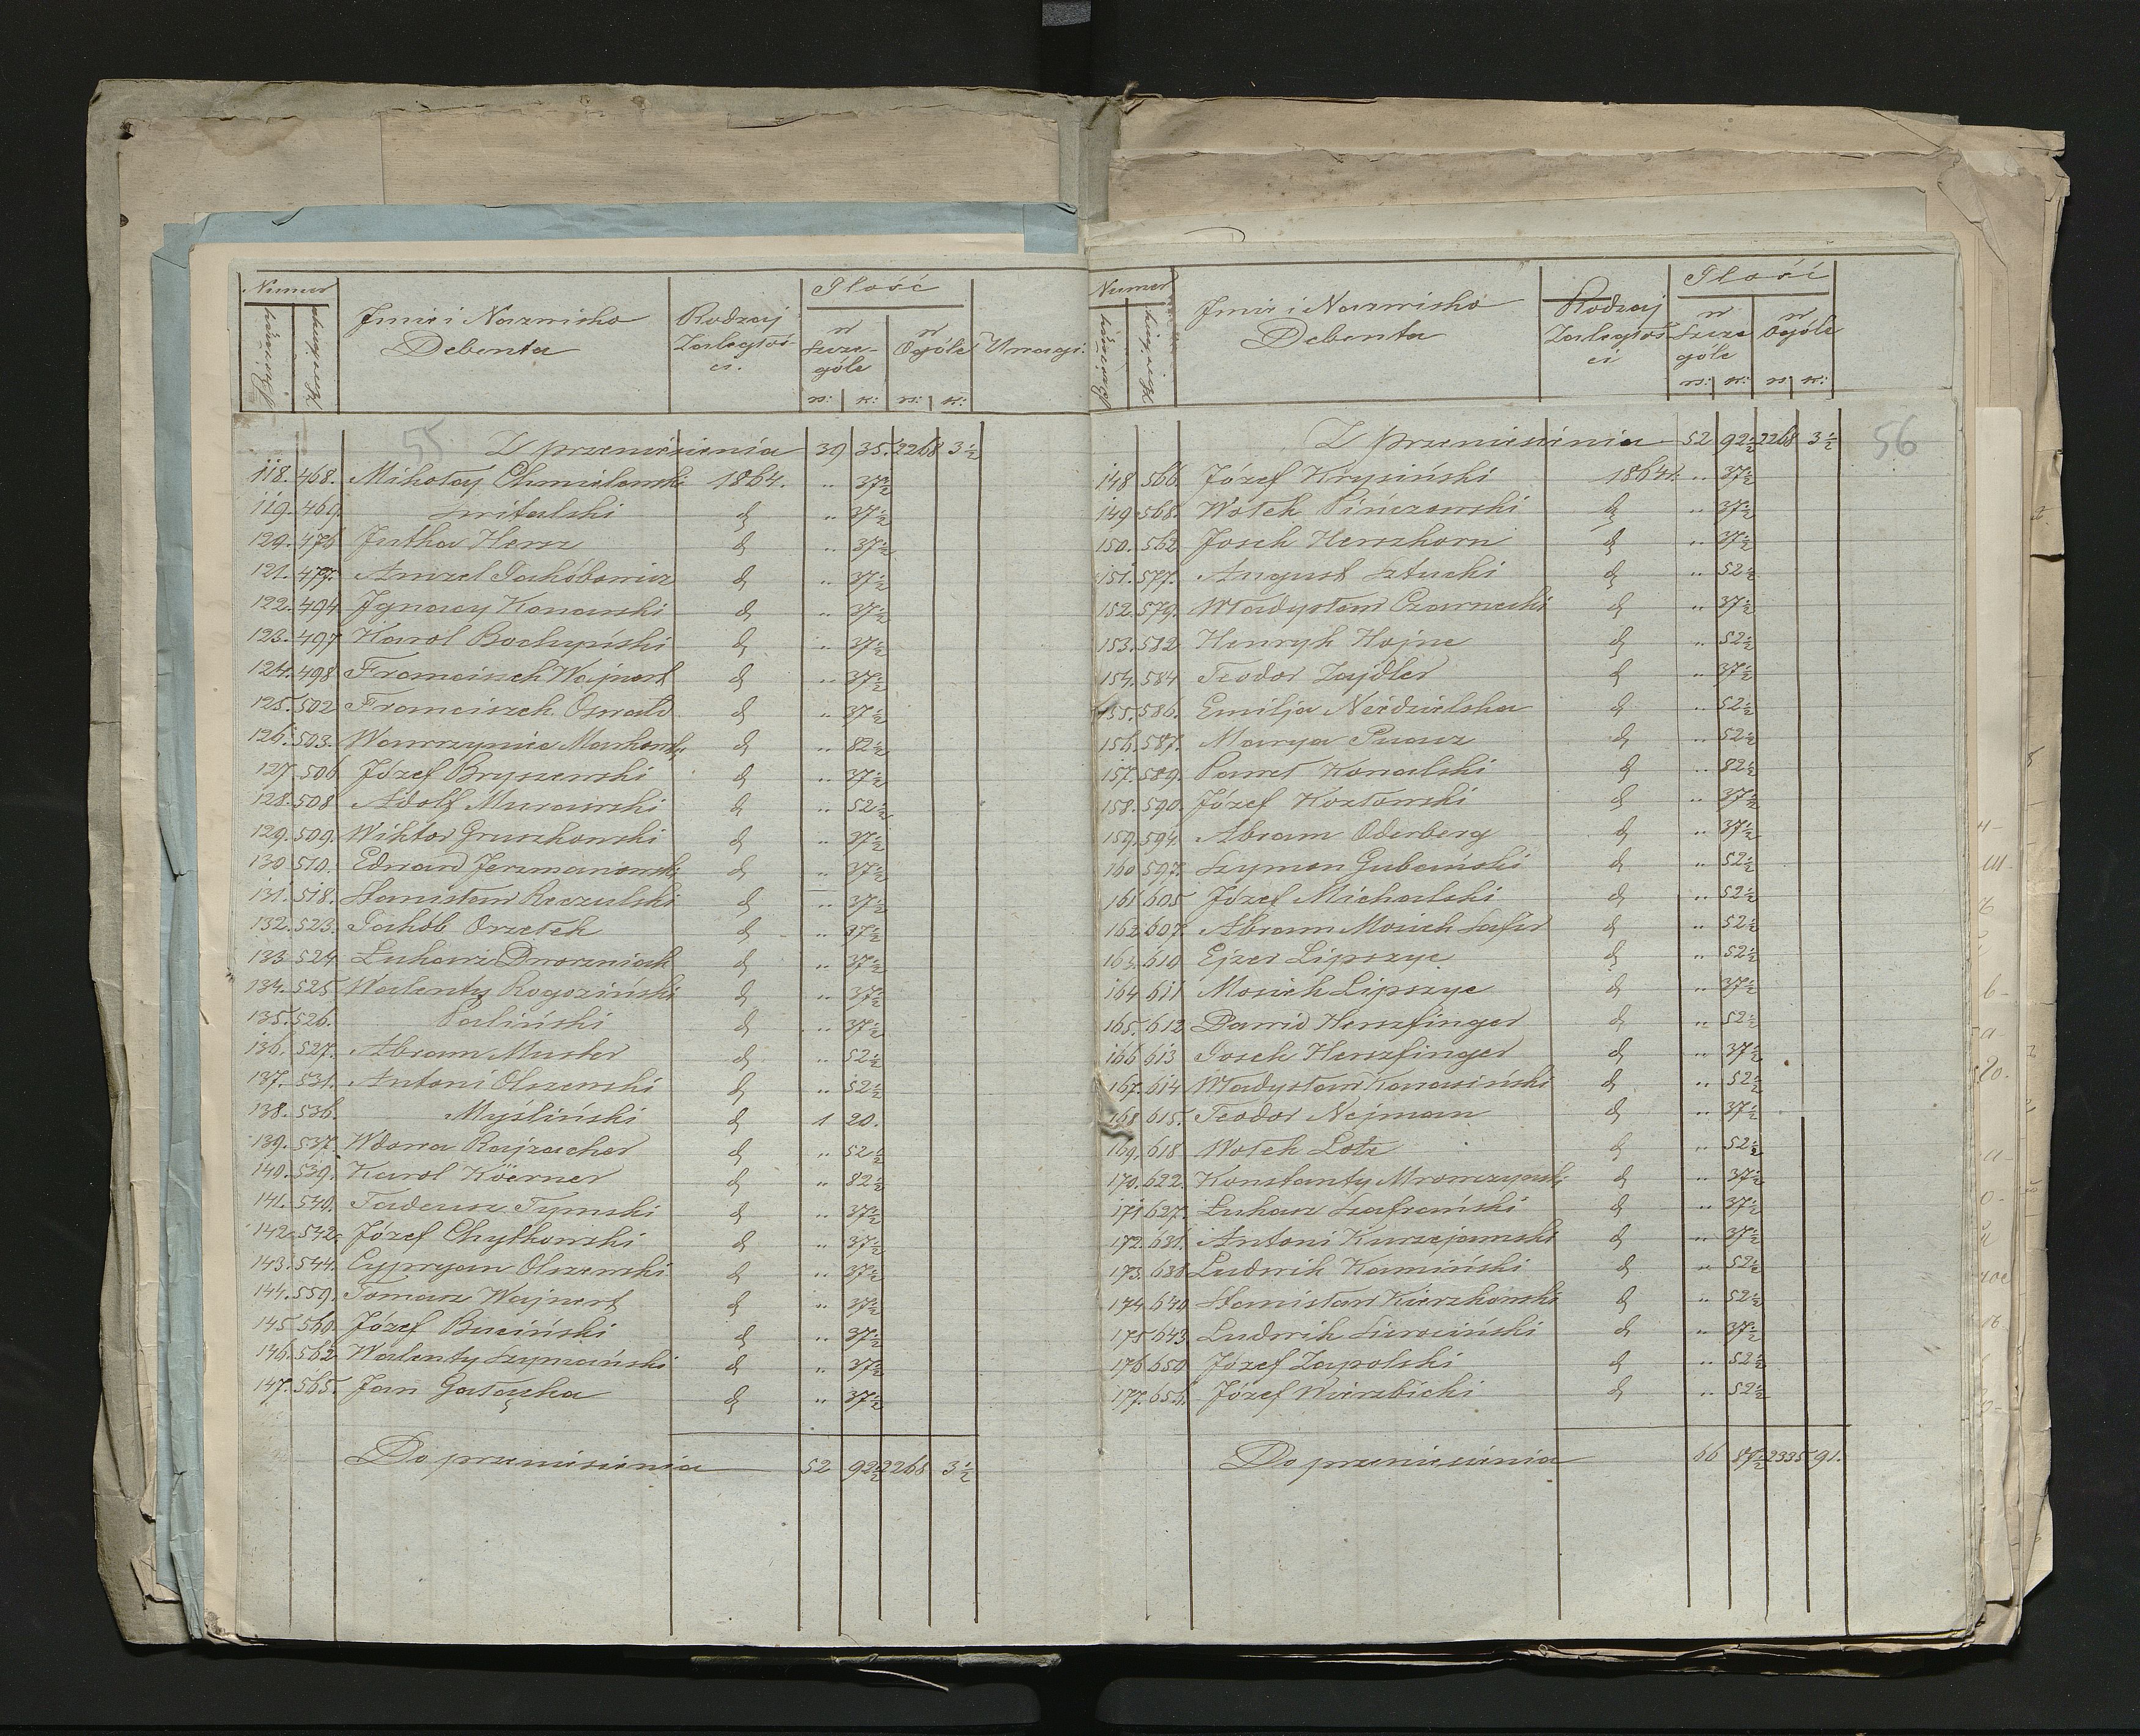 Numer
Imie i Nazwisko
Debenta
Rodzaj
Zaległoś-
ci.
Ilość
w
Szcze-
góle
w
Ogóle
Uwagi.
rs: k: rs: k:
55
Z przeniesienia 39 35. 2268 3½
118. 468. Mikołaj Chmielewski 1864. " 37½
119. 469. Switalski d " 37½
120. 476 Jutka Hersz d " 37½
121. 477. Amzel Jakóbowicz d " 37½
122. 494. Ignacy Kanarski d " 37½
123. 497 Karol Bochyński d " 37½
124. 498 Franciszek Wajnert d " 37½
125. 502 Franciszek Oswald d " 37½
126. 503. Wawrzyniec Markowski d " 82½
127. 506 Józef Bryszewski d " 37½
128. 508 Adolf Murawski d " 52½
129. 509. Wiktor Gruszkowski d " 37½
130 510. Edward Jerzmanowski d " 37½
131. 518. Stanisław Raczulski d " 37½
132. 523. Jakób Orzełek d " 37½
133 524 Łukasz Dworzniak d " 37½
134. 525 Walenty Rogoziński d " 37½
135. 526. Paliński d " 37½
136. 527. Abram Muster d " 52½
137. 531. Antoni Olszewski d " 52½
138. 536. Myśliński d 1 20.
139. 537. Wdowa Rajzacher d " 52½
140. 539. Karol Köerner d " 82½
141. 540. Tadeusz Tymski d " 37½
142. 542. Józef Chytkowski d " 37½
143. 544. Cypryan Olszewski d " 37½
144. 559. Tomasz Wajnert d " 37½
145 560. Józef Buciński d " 37½
146. 562 Walenty Szymański d " 37½
147. 565. Jan Gałązka d " 37½
Do przeniesienia 52 92½ 2268 3½
Numer
Imie i Nazwisko
Debenta
Rodzaj
Zaległoś-
ci
Ilość
w
Szcze
góle
w
Ogóle
rs: k: rs k:
56
Z przeniesienia 52 92½ 2268 3½
148 566. Józef Krysiński 1864r. " 37½
149 568. Wolek Pińczowski d " 37½
150. 562 Josek Herszkorn d " 37½
151. 577. August Sztucki d " 52½
152. 579. Władysław Czarnecki d " 37½
153. 582 Henryk Hojne d " 52½
154. 584 Teodor Zajdler d " 37½
155. 586. Emilja Niedzielska d " 52½
156. 587. Marya d " 52½
157. 589. Paweł Kowalski d " 82½
158. 590. Józef Kozłowski d " 37½
159. 594. Abram Oderberg d " 37½
160 597. Szymon Gubański d " 52½
161 605 Józef Michalski d " 52½
162 607. Abram Mosiek Safir d " 52½
163. 610 Ejzer Lipszyc d " 52½
164 611 Mosiek Lipszyc d " 37½
165. 612 Dawid Herszfinger d " 52½
166 613 Josek Herszfinger d " 37½
167. 614 Władysław Kanasiński d " 52½
168 615. Teodor Nejman d " 37½
169. 618 Wolek Lotz d " 52½
170. 622. Konstanty Mrowczyński d " 37½
171 627. Łukasz Szafrański d " 37½
172. 631. Antoni Kurzejamski d " 37½
173. 638 Ludwik Kamiński d " 52½
174 640 Stanisław Kierzkowski d " 52½
175 643 Ludwik Sierociński d " 37½
176 650 Józef Zapolski d " 52½
177. 656. Józef Wierzbicki d " 52½
Do przeniesienia 66 87½ 2335 91.